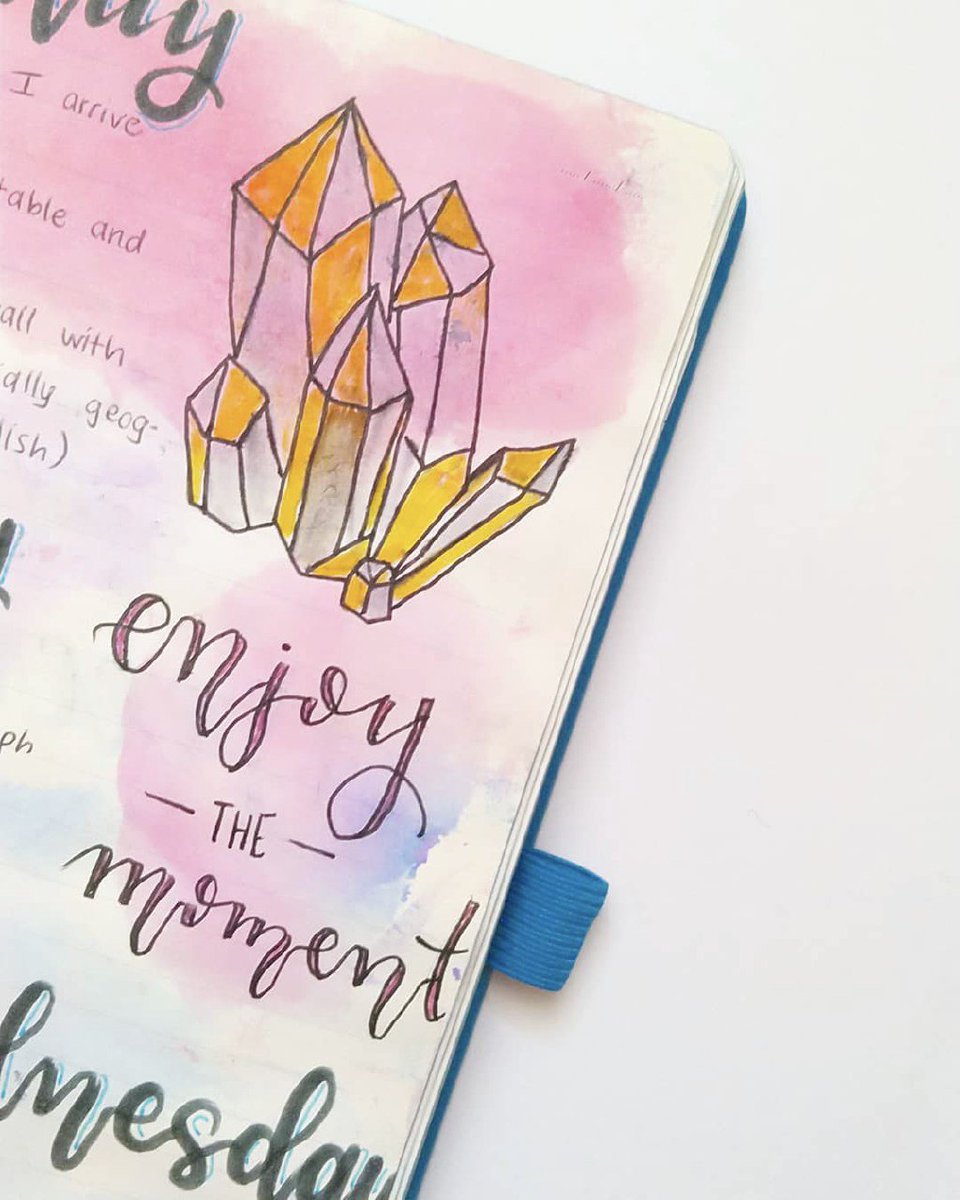 I arrive
table and
all with
ally geog-
lish)
enjoy
ph
— THE —
moment
dnesday